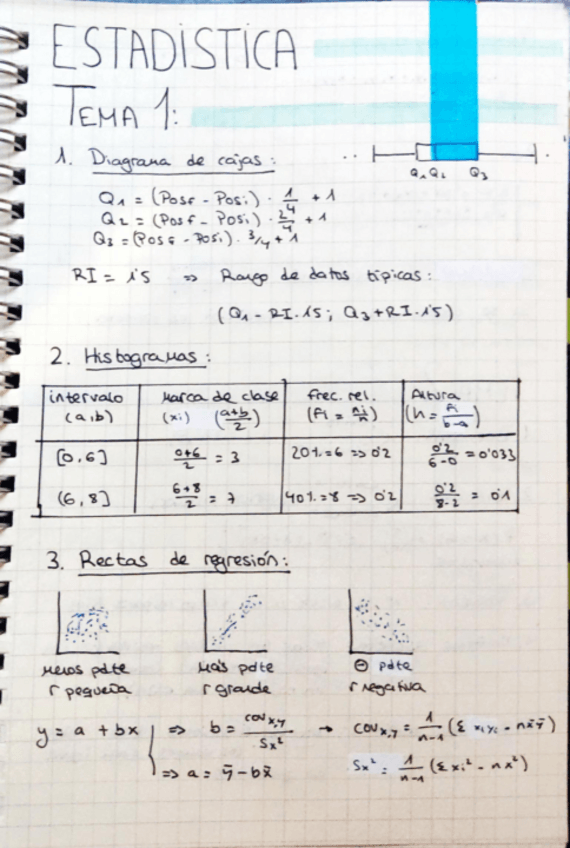 ESTADÍSTICA
TEMA 1:
1. Diagrama de cajas:
Q1 Q2 Q3
Q1 = (Posf - Posi) · 1/4 + 1
Q2 = (Posf - Posi) · 2/4 + 1
Q3 = (Posf - Posi) · 3/4 + 1
RI = 1'5 => Rango de datos típicas:
(Q1 - RI·1'5; Q3 + RI·1'5)
2. Histogramas:
intervalo (a,b) | Marca de clase (xi) (a+b/2) | frec. rel. (fi = ni/n) | Altura (h = fi/b-a)
[0,6] | 0+6/2 = 3 | 20% = 6 => 0'2 | 0'2/6-0 = 0'033
(6,8] | 6+8/2 = 7 | 40% = 8 => 0'2 | 0'2/8-2 = 0'1
3. Rectas de regresión:
Menos pdte Más pdte ⊖ pdte
r pequeña r grande r negativa
y = a + bx => b = covx,y/Sx² → covx,y = 1/n-1 (Σ xiyi - nx̄ȳ)
=> a = ȳ - bx̄ Sx² = 1/n-1 (Σ xi² - nx̄²)